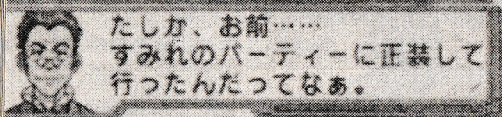 たしか、お前……
すみれのパーティーに正装して
行ったんだってなぁ。